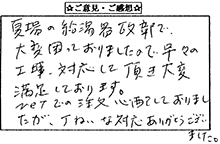 ☆ご意見・ご感想☆
夏場の給湯器故障で、
大変困っておりましたので早々の
工事、対応して頂き大変
満足しております。
netでの注文心配しておりまし
たが、丁ねいな対応ありがとうござい
ました。